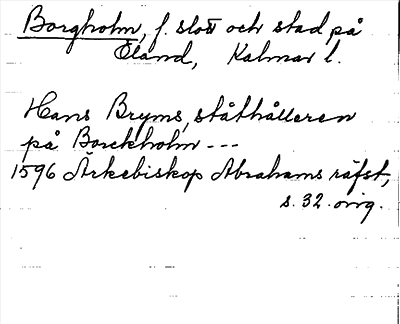 Borgholm, f. slott och stad på
Öland, Kalmar l.
Hans Bryms, ståthålleren
på Borckholm ---
1596 Ärkebiskop Abrahams räfst,
s. 32. orig.